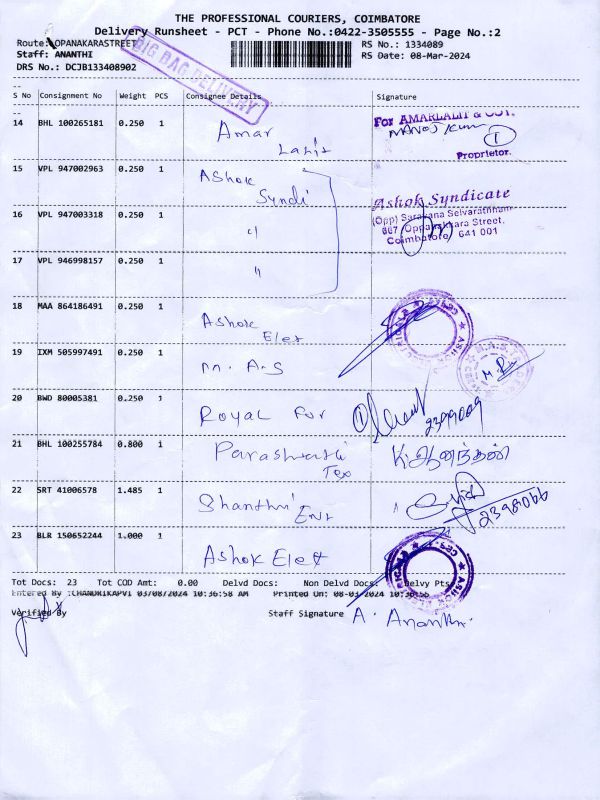 THE PROFESSIONAL COURIERS, COIMBATORE
Delivery Runsheet - PCT - Phone No.:0422-3505555 - Page No.:2
Route: OPANAKARASTREET
RS No.: 1334089
Staff: ANANTHI
RS Date: 08-Mar-2024
DRS No.: DCJB133408902
BIG BAG DELIVERY
S No Consignment No Weight PCS Consignee Details Signature
14 BHL 100265181 0.250 1 Amar Lalit
For AMARLALIT &
MANOJ Kum
Proprietor.
15 VPL 947002963 0.250 1 Ashok Syndi
Ashok Syndicate
(Opp) Saravana Selvarathnam
667, Oppanakkara Street,
Coimbatore, 641 001
16 VPL 947003318 0.250 1 "
17 VPL 946998157 0.250 1 "
18 MAA 864186491 0.250 1 Ashok Elet
19 IXM 505997491 0.250 1 M.A.S
20 BWD 80005381 0.250 1 Royal Fur
2399009
21 BHL 100255784 0.800 1 Parashwathi Tex K.ஆனந்தன்
22 SRT 41006578 1.485 1 Shanthi Ent
2398066
23 BLR 150652244 1.000 1 Ashok Elet
Tot Docs: 23 Tot COD Amt: 0.00 Delvd Docs: Non Delvd Docs: Delvy Pts
Entered By :CHANDRIKAPV1 03/08/2024 10:36:58 AM Printed On: 08-03-2024 10:36:55
Verified By
Staff Signature A. Ananthi.